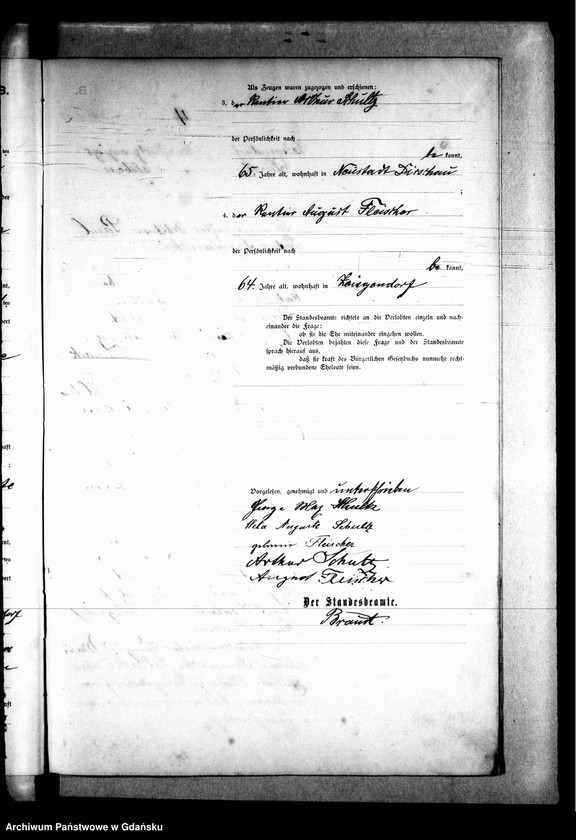 Als Zeugen waren zugezogen und erschienen:
3. der Rentier Arthur Schultz
der Persönlichkeit nach
be kannt,
65 Jahre alt, wohnhaft in Neustadt Dirschau
;
4. der Rentier August Fleischer
der Persönlichkeit nach
be kannt,
64 Jahre alt, wohnhaft in
Der Standesbeamte richtete an die Verlobten einzeln und nach-
einander die Frage:
ob sie die Ehe miteinander eingehen wollen.
Die Verlobten bejahten diese Frage und der Standesbeamte
sprach hierauf aus,
daß sie kraft des Bürgerlichen Gesetzbuchs nunmehr recht-
mäßig verbundene Eheleute seien.
Vorgelesen, genehmigt und unterschrieben
George Max Schultz
Auguste Schultz
geborene Fleischer
Arthur Schultz
August Fleischer
Der Standesbeamte.
Brandt.
Archiwum Państwowe w Gdańsku